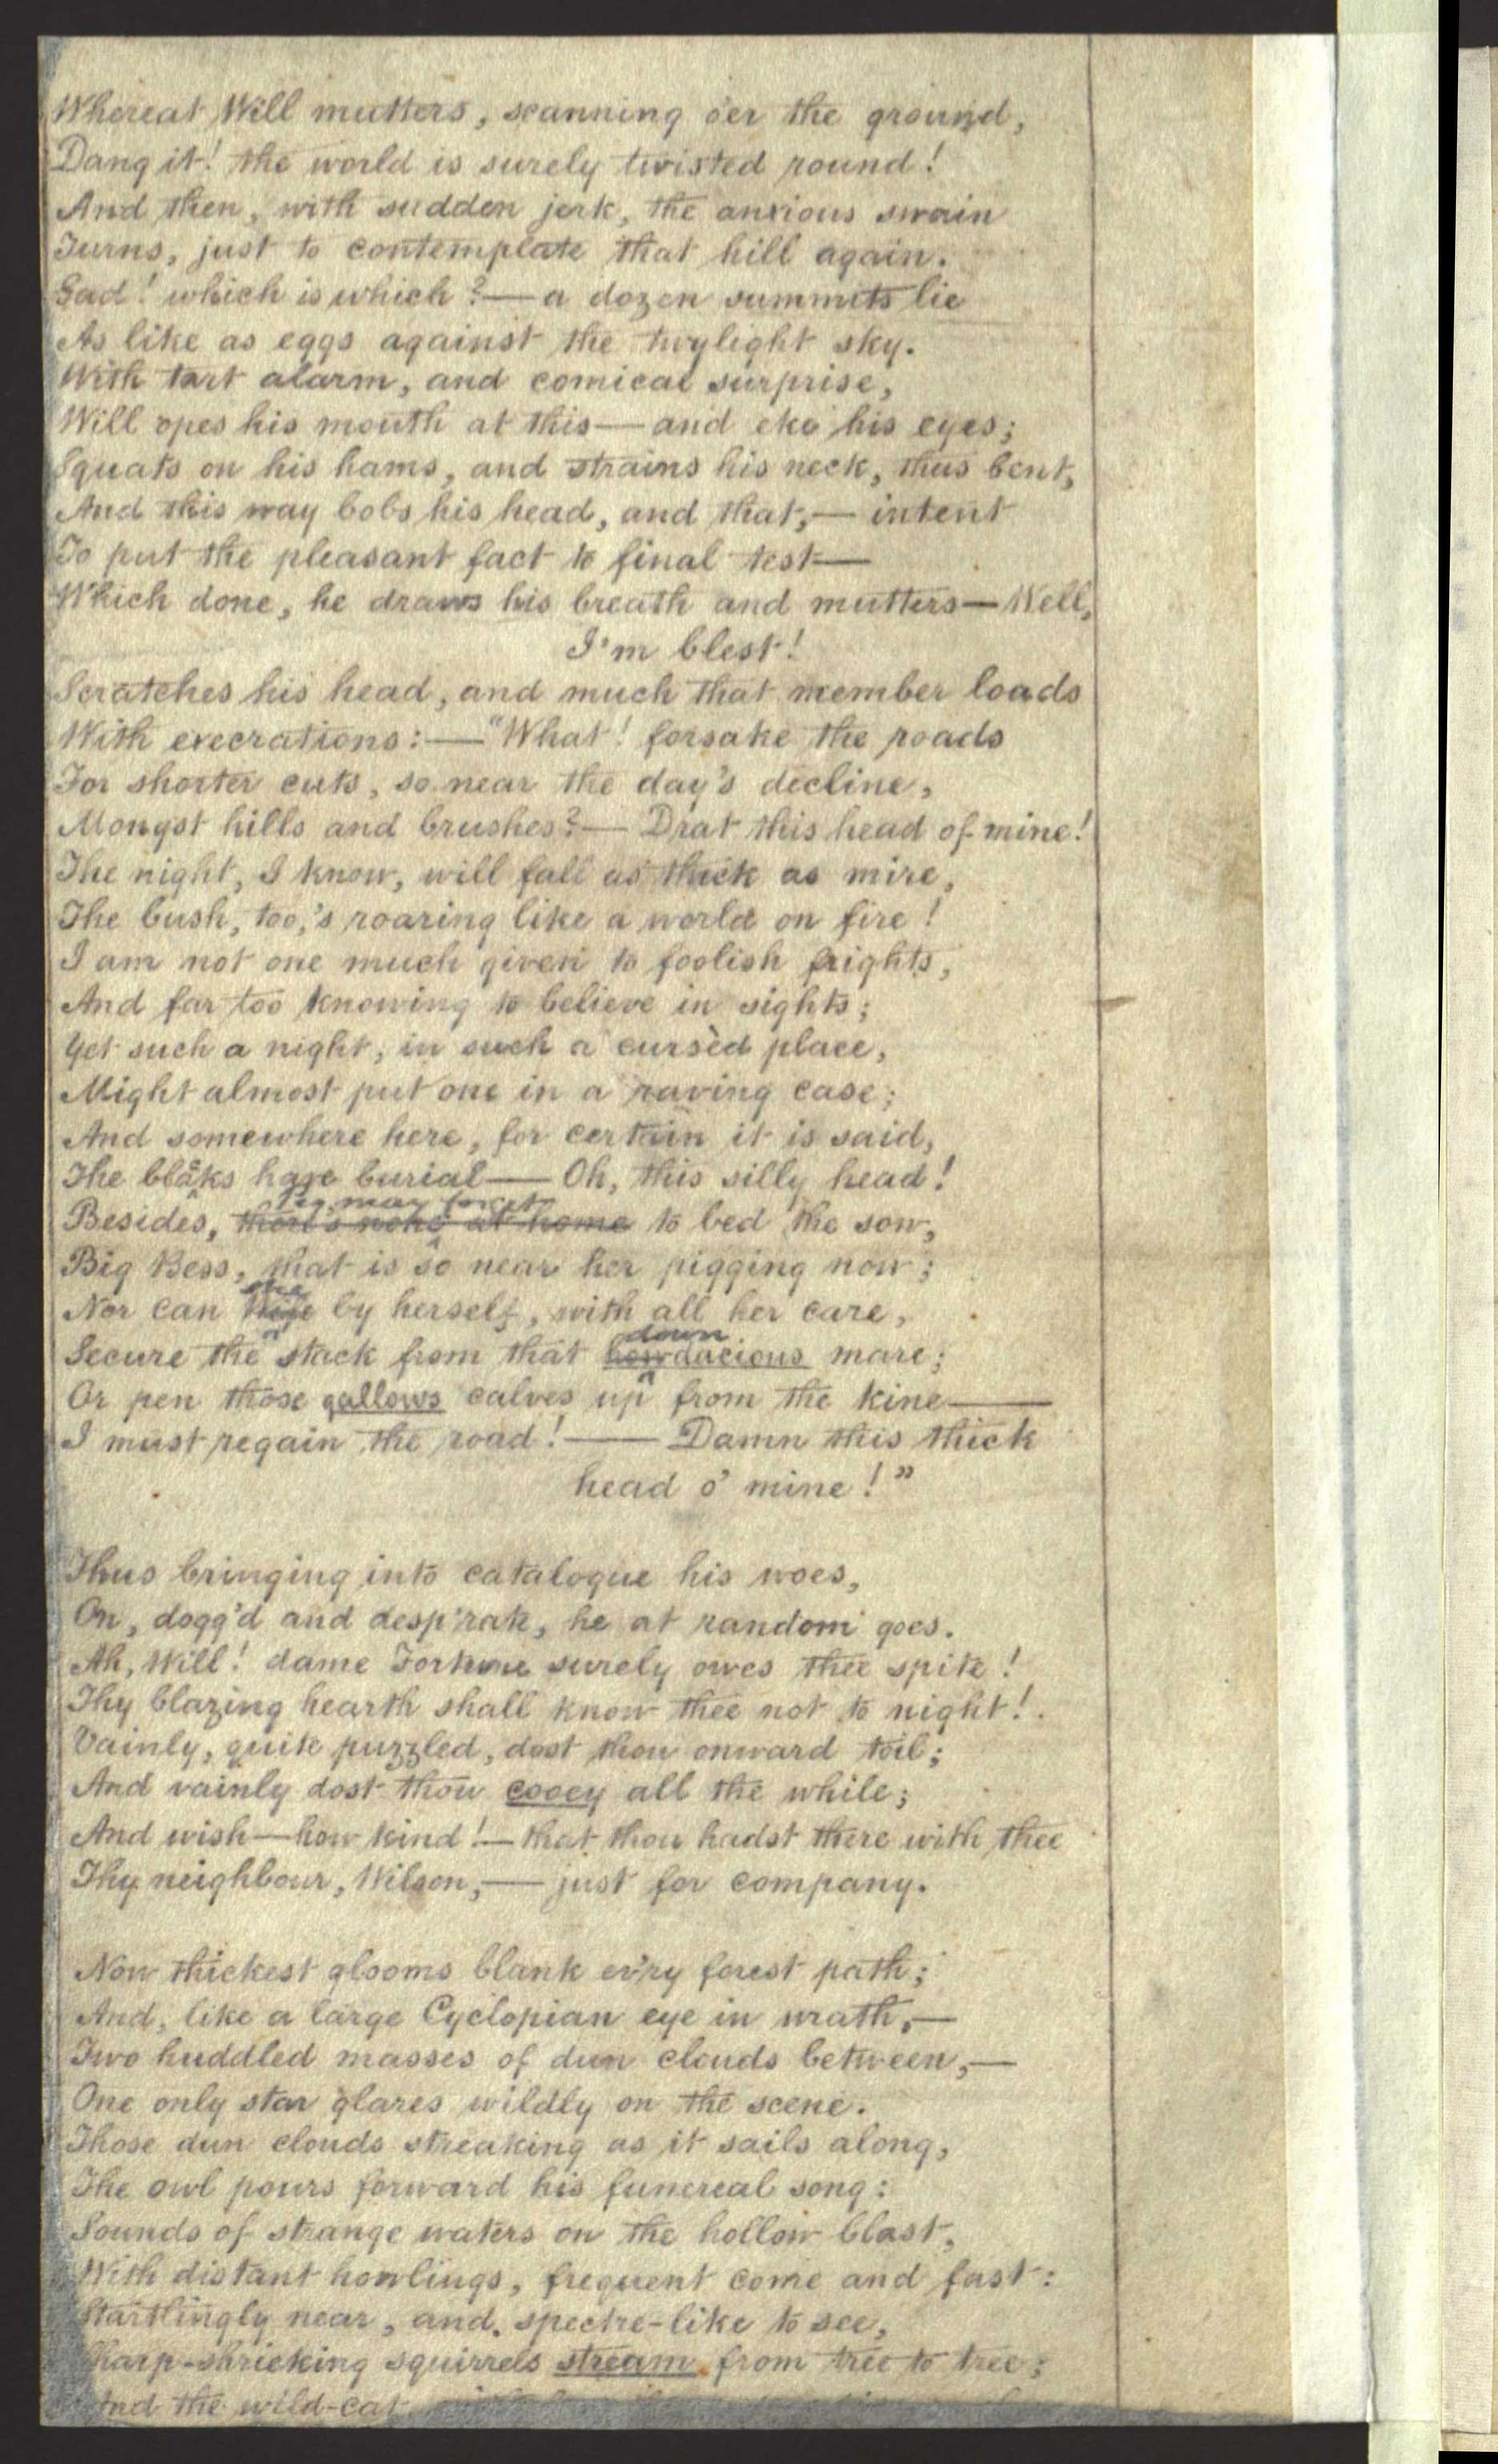 Whereat Will mutters, scanning o'er the ground,
Dang it! the world is surely twisted round!
And then, with sudden jerk, the anxious swain
Turns, just to contemplate that hill again.
Gad! which is which?—a dozen summits lie
As like as eggs against the twylight sky.
With tart alarm, and comical surprise,
Will opes his mouth at this—and eke his eyes;
Squats on his hams, and strains his neck, thus bent,
And this way bobs his head, and that,—intent
To put the pleasant fact to final test—
Which done, he draws his breath and mutters—Well,
I'm blest!
Scratches his head, and much that member loads
With execrations:—"What! forsake the roads
For shorter cuts, so near the day's decline,
Mongst hills and brushes?—Drat this head of mine!
The night, I know, will fall as thick as mire,
The bush, too,'s roaring like a world on fire!
I am not one much given to foolish frights,
And far too knowing to believe in sights;
Yet such a night, in such a cursèd place,
Might almost put one in a raving case;
And somewhere here, for certain it is said,
The blaks have burial—Oh, this silly head!
Peg may forget
Besides, there's none at home to bed the sow,
Big Bess, that is so near her pigging now;
she
Nor can by herself, with all her care,
down
Secure the stack from that howdacious mare;
Or pen those gallows calves up from the kine—
I must regain the road!—Damn this thick
head o' mine!"
Thus bringing into catalogue his woes,
On, dogg'd and desp'rate, he at random goes.
Ah, Will! dame Fortune surely owes thee spite!
Thy blazing hearth shall know thee not to night!
Vainly, quite puzzled, dost thou onward toil;
And vainly dost thou cooey all the while;
And wish—how kind!—that thou hadst there with thee
Thy neighbour, Wilson,—just for company.
Now thickest glooms blank ev'ry forest path;
And, like a large Cyclopian eye in wrath,—
Two huddled masses of dun clouds between,—
One only star glares wildly on the scene.
Those dun clouds streaking as it sails along,
The owl pours forward his funereal song:
Sounds of strange waters on the hollow blast,
With distant howlings, frequent come and fast:
Startlingly near, and, spectre-like to see,
Sharp-shrieking squirrels stream from tree to tree;
And the wild-cat